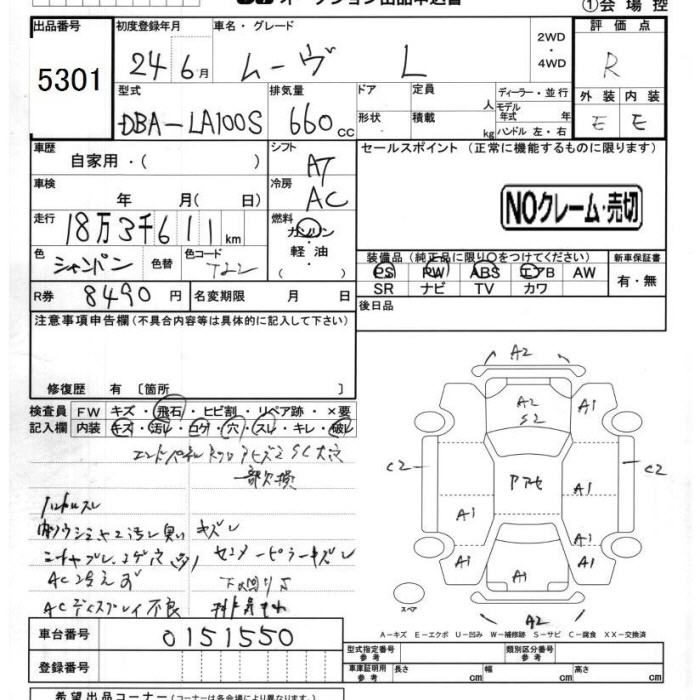 オークション出品申込書
①会場控
出品番号 5301
初度登録年月 24年 6月
車名・グレード ムーヴ L
2WD
4WD
評価点 R
外装 E 内装 E
型式 DBA-LA100S
排気量 660 cc
ドア 形状
定員 人
積載 kg
ディーラー・並行
モデル年式 年
ハンドル 左・右
車歴 自家用・( )
シフト AT
セールスポイント (正常に機能するものに限ります)
車検 年 月( 日)
冷房 AC
NOクレーム・売切
走行 18万3千611 km
燃料 ガソリン・軽油・( )
色 シャンパン 色替 色コード T22
装備品(純正品に限り○をつけてください)
新車保証書
PS PW ABS エアB AW
有・無
SR ナビ TV カワ
R券 8490 円 名変期限 月 日
後日品
注意事項申告欄(不具合内容等は具体的に記入して下さい)
修復歴 有〔箇所 〕
検査員記入欄 FW キズ・飛石・ヒビ割・リペア跡・×要
内装 キズ・汚レ・コゲ・穴・スレ・キレ・破レ
一部欠損
ハンドルスレ
キズレ
センターピラーキズレ
AC冷えず
下回りサ
ACディスプレイ不良
A2
A2
S2
A1
A1
C2
C2
A1
A1
A1
A1
A1
A2
スペア
A-キズ E-エクボ U-凹み W-補修跡 S-サビ C-腐食 XX-交換済
車台番号 0151550
登録番号
型式指定番号 参考
類別区分番号 参考
車庫証明用 参考 長さ cm 幅 cm 高さ cm
希望出品コーナー(コーナーは各会場により異なります)